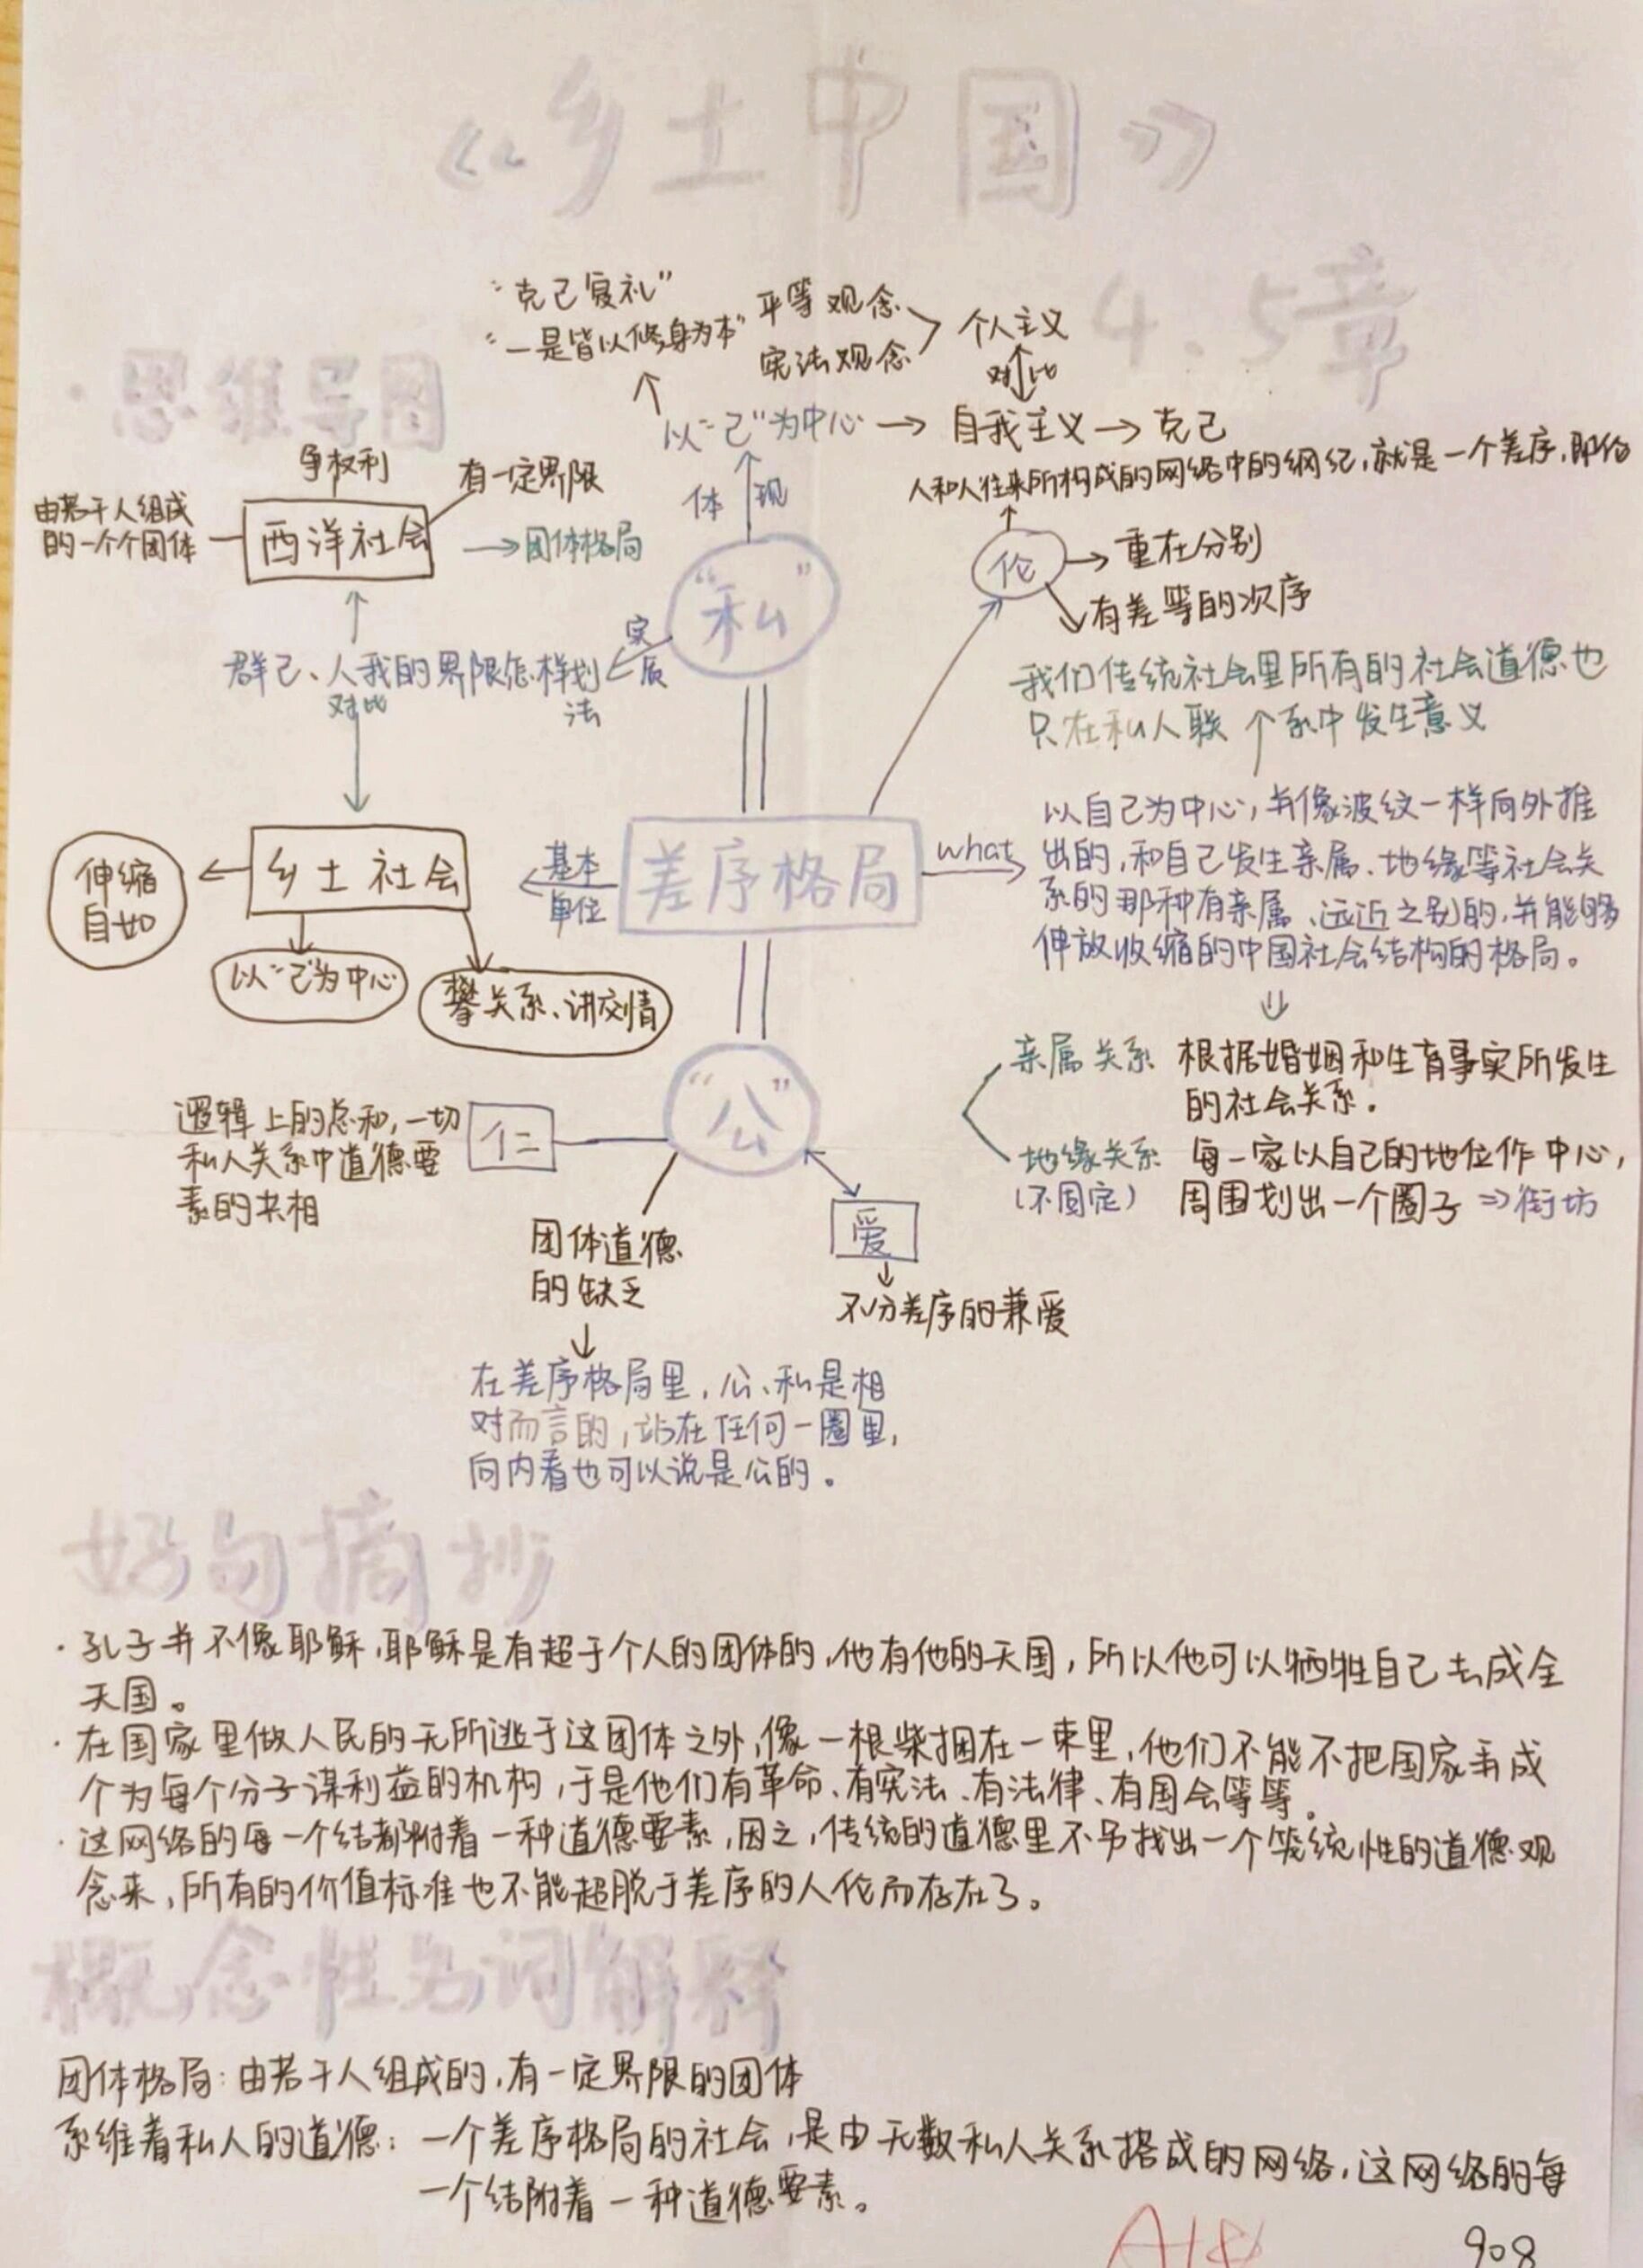 《乡土中国》
4、5章
·思维导图
“克己复礼”
“一是皆以修身为本”
平等观念
宪法观念
个人主义
对比
以“己”为中心
自我主义
克己
体现
“私”
争权利
有一定界限
由若干人组成
的一个个团体
西洋社会
团体格局
实质
群己、人我的界限怎样划
法
对比
人和人往来所构成的网络中的纲纪,就是一个差序,即伦
伦
重在分别
有差等的次序
我们传统社会里所有的社会道德也
只在私人联系中发生意义
差序格局
what
以自己为中心,并像波纹一样向外推
出的,和自己发生亲属、地缘等社会关
系的那种有亲属、远近之别的,并能够
伸放收缩的中国社会结构的格局。
亲属关系
根据婚姻和生育事实所发生
的社会关系.
地缘关系
(不固定)
每一家以自己的地位作中心,
周围划出一个圈子⇒街坊
基本
单位
乡土社会
伸缩
自如
以“己”为中心
攀关系、讲交情
“公”
仁
逻辑上的总和,一切
私人关系中道德要
素的共相
团体道德
的缺乏
爱
不分差序的兼爱
在差序格局里,公、私是相
对而言的,站在任何一圈里,
向内看也可以说是公的。
好句摘抄
·孔子并不像耶稣,耶稣是有超于个人的团体的,他有他的天国,所以他可以牺牲自己去成全
天国。
·在国家里做人民的无所逃于这团体之外,像一根柴捆在一束里,他们不能不把国家弄成
个为每个分子谋利益的机构,于是他们有革命、有宪法、有法律、有国会等等。
·这网络的每一个结都附着一种道德要素,因之,传统的道德里不另找出一个笼统性的道德观
念来,所有的价值标准也不能超脱于差序的人伦而存在了。
概念性名词解释
团体格局:由若干人组成的,有一定界限的团体
系维着私人的道德:一个差序格局的社会,是由无数私人关系搭成的网络,这网络的每
一个结附着一种道德要素。
908